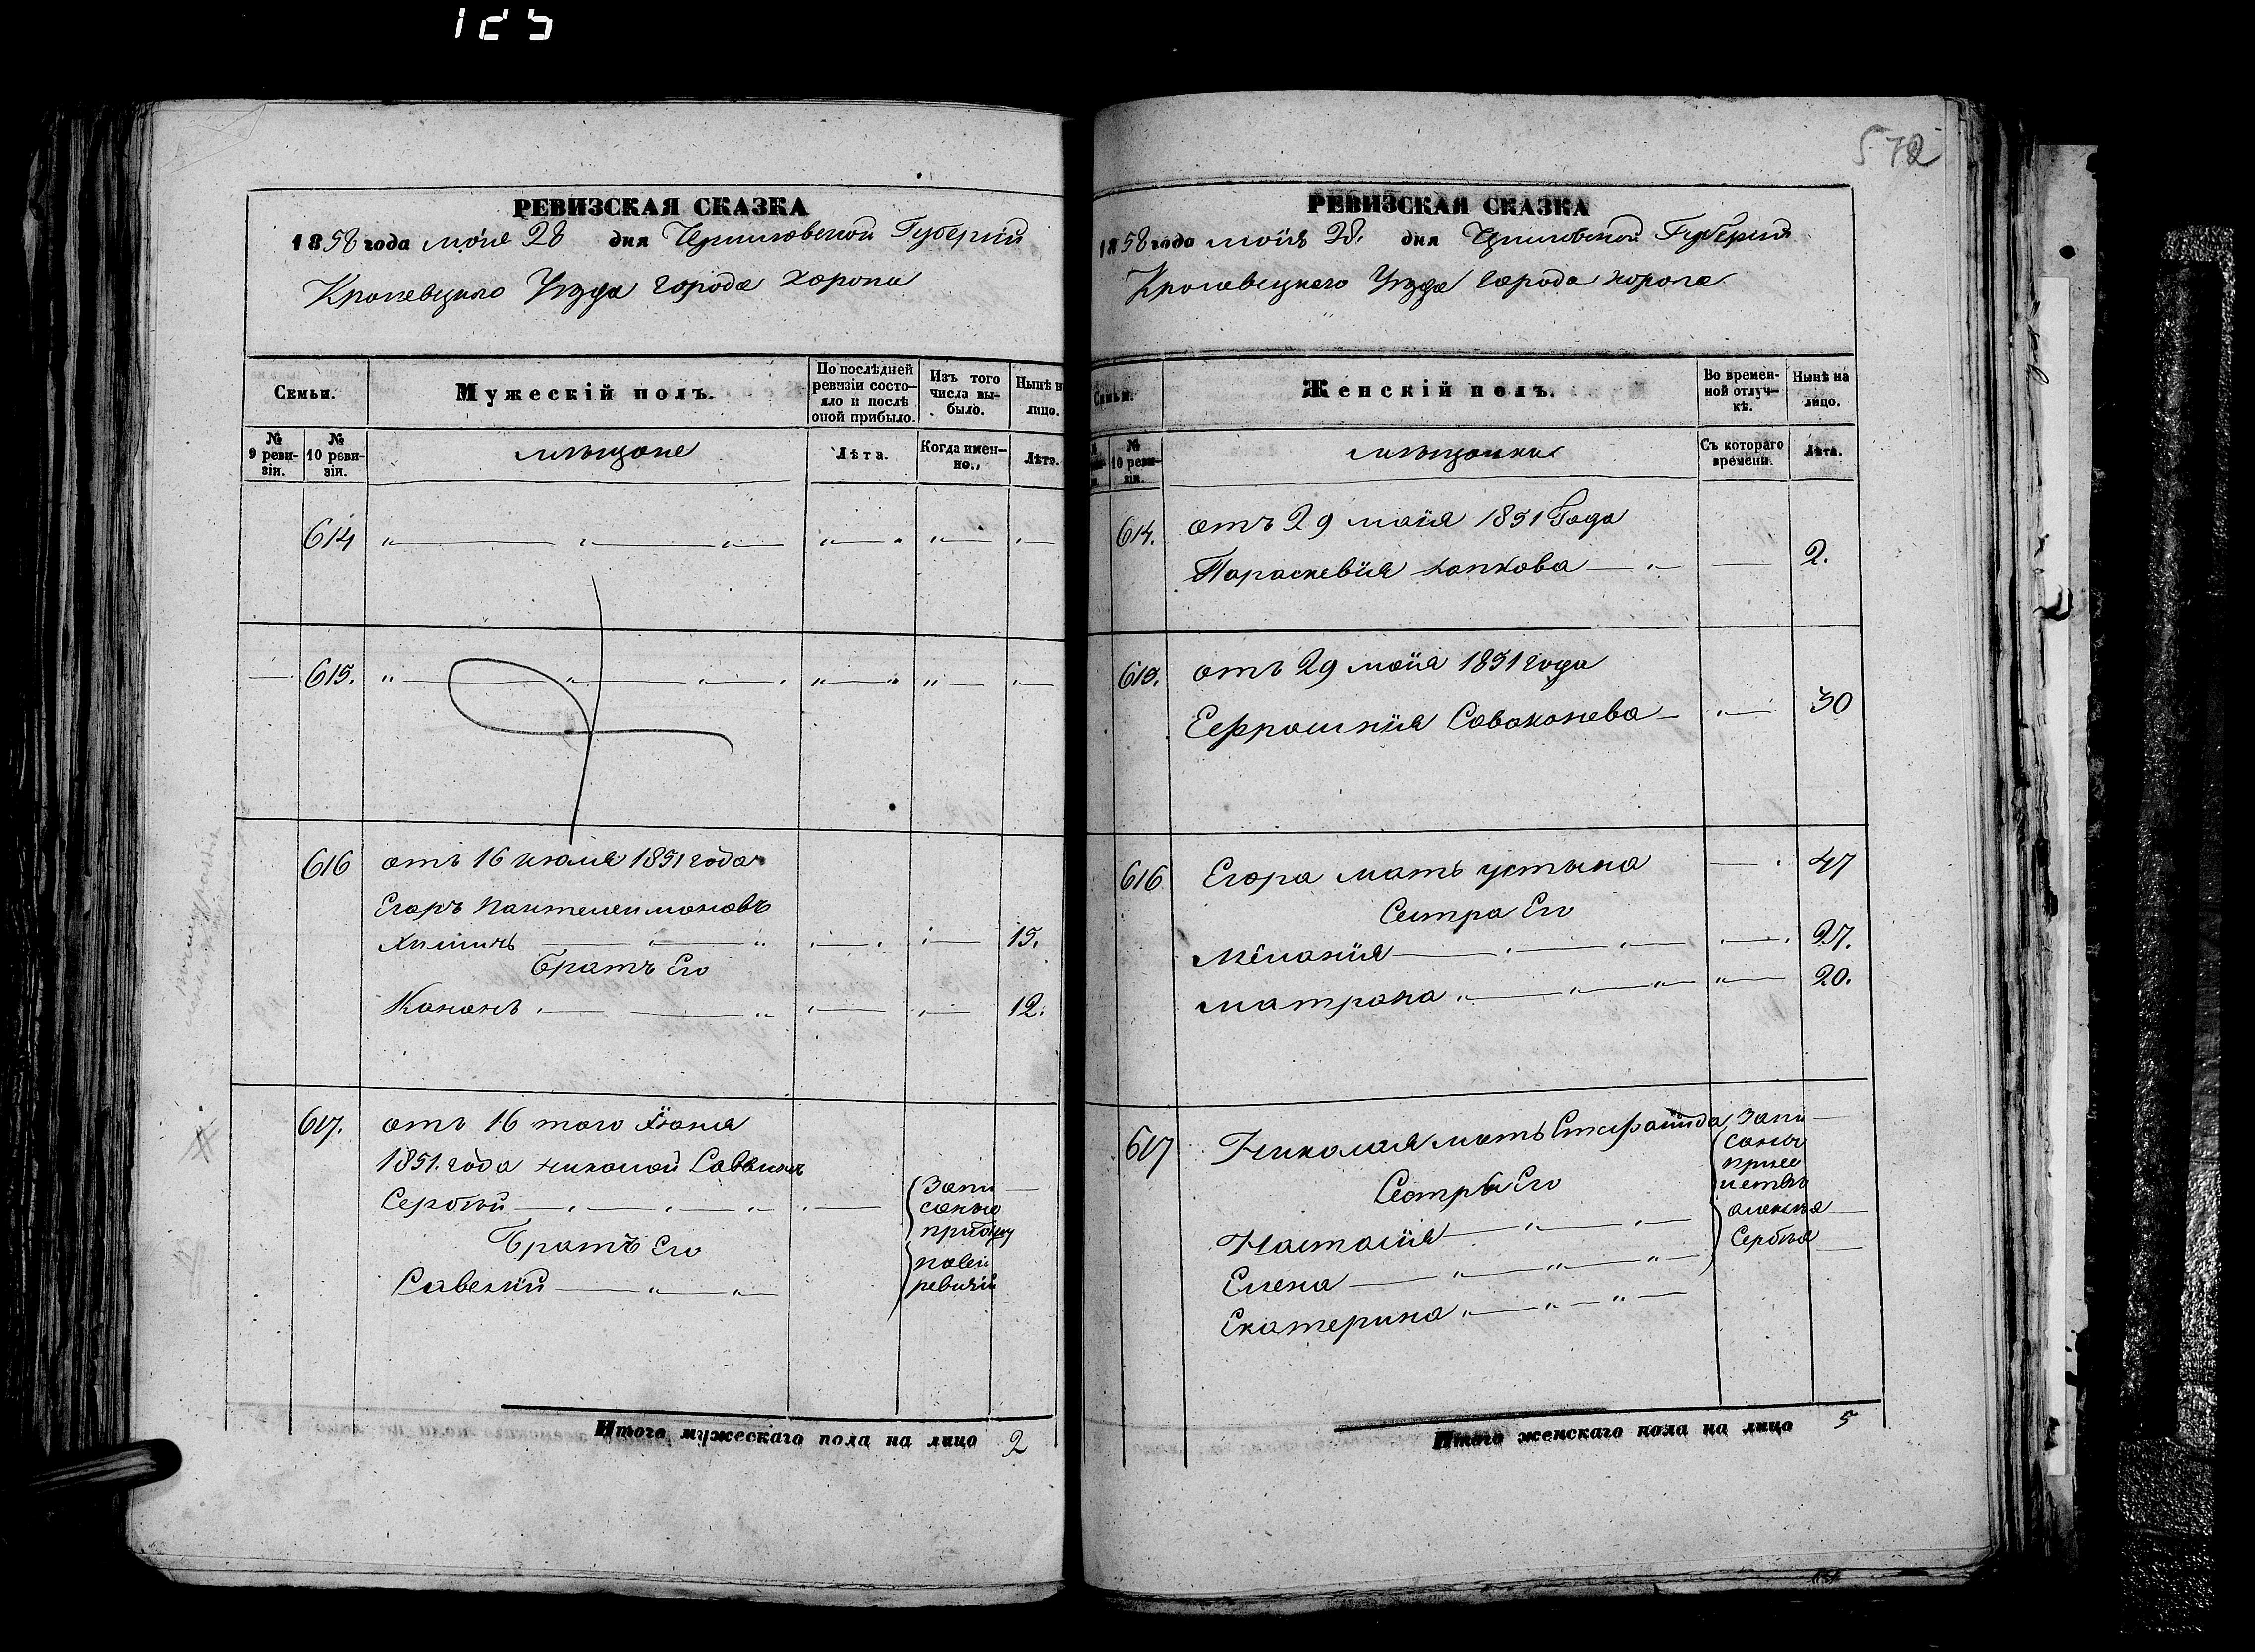 125
572
РЕВИЗСКАЯ СКАЗКА
1858 года мая 28 дня Черниговской Губернии
Кролевецкого Уезда города Коропа
Семьи.
Мужескій полъ.
По послѣдней ревизіи состояло и послѣ оной прибыло.
Изъ того числа выбыло.
Нынѣ н
лицо.
№ 9 ревизіи.
№ 10 ревизіи.
мещане
Лѣта.
Когда именно.
Лѣта.
614
615.
616 отъ 16 июля 1851 года
Егоръ Пантелеимоновъ
15.
Братъ Его
Кононъ 12.
617. отъ 16 того Июня
1851. года Николай Саввинъ
Сербий
Запи
саны
Братъ Его
Савелий
ревизии
Итого мужескаго пола на лицо 2
РЕВИЗСКАЯ СКАЗКА
1858 года мая 28. дня Черниговской Губернии
Кролевецкаго Уезда города Коропа
Семьи.
Женскій полъ.
Во временной отлучкѣ.
Нынѣ на лицо.
№ 10 ревизіи.
мещанки
Съ котораго времени.
Лѣта.
614. отъ 29 маия 1851 Года
Параскевия 2.
615. отъ 29 маия 1851 года
Ефросиния 30
616 Егора мать устина 47
Сестра Его
Мелания 27.
матрона 20.
617 Николая мать Степанида
Запи
саны
при се
мстве
алексея
Сербия
Сестры Его
Настасия
Елена
Екатерина
Итого женскаго пола на лицо 5